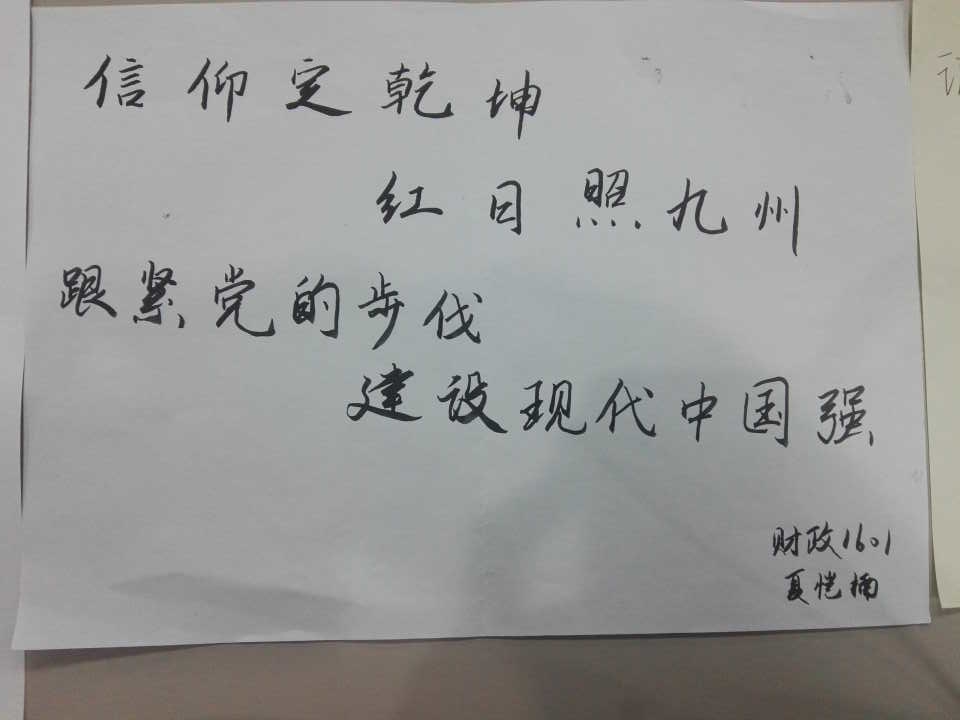 信仰定乾坤
红日照九州
跟紧党的步伐
建设现代中国强
财政1601
夏恺楠